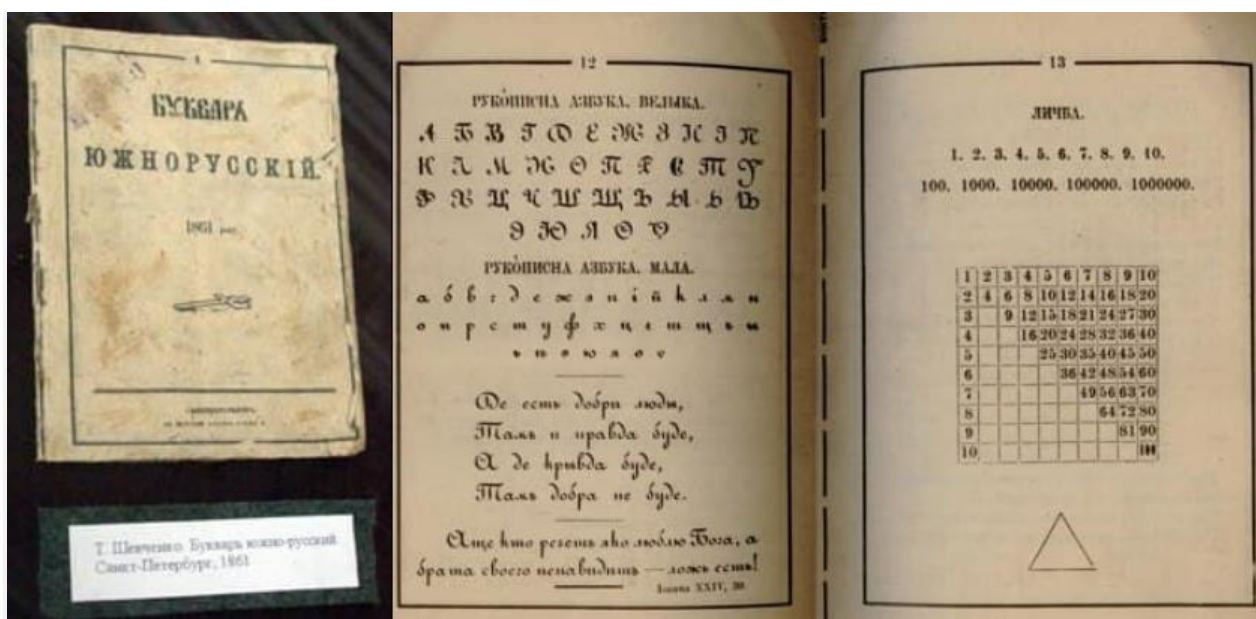 БУКВАРЬ
ЮЖНОРУССКІЙ.
1861
Т. Шевченко. Букварь южно-русский
Санкт-Петербург, 1861
12
РУКО́ПИСНА АЗБУКА. ВЕЛЫКА.
А Б В Г Д Е Ж З И І Й
К Л М Н О П Р С Т У
Ф Х Ц Ч Ш Щ Ъ Ы Ь Ѣ
Э Ю Я Ѳ Ѵ
РУКО́ПИСНА АЗБУКА. МАЛА.
а б в г д е ж з и і й к л м н
о п р с т у ф х ц ч ш щ ъ ы
ь ѣ э ю я ѳ ѵ
Де есть добри люды,
Тамъ и правда буде,
А де крывда буде,
Тамъ добра не буде.
Аще кто речеть яко люблю Бога, а
брата своего ненавидить — ложь есть!
Іоанна XXIV, 20.
13
ЛИЧБА.
1. 2. 3. 4. 5. 6. 7. 8. 9. 10.
100. 1000. 10000. 100000. 1000000.
1 2 3 4 5 6 7 8 9 10
2 4 6 8 10 12 14 16 18 20
3 9 12 15 18 21 24 27 30
4 16 20 24 28 32 36 40
5 25 30 35 40 45 50
6 36 42 48 54 60
7 49 56 63 70
8 64 72 80
9 81 90
10 100